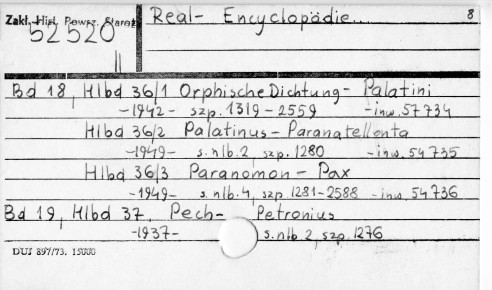 Zakł. Hist. Powsz. Staroż.
52520
II
Real- Encyclopädie...
8
Bd 18, Hlbd 36/1 Orphische Dichtung- Palatini
-1942- szp. 1319-2559 -inw. 57734
Hlbd 36/2 Palatinus-Paranatellonta
-1949- s.nlb.2, szp. 1280 -inw. 54735
Hlbd 36/3 Paranomon - Pax
-1949- s.nlb.4, szp. 1281-2588 -inw. 54736
Bd 19, Hlbd 37, Pech- Petronius
-1937- s.nlb.2, szp. 1276
DUJ 897/73. 15000